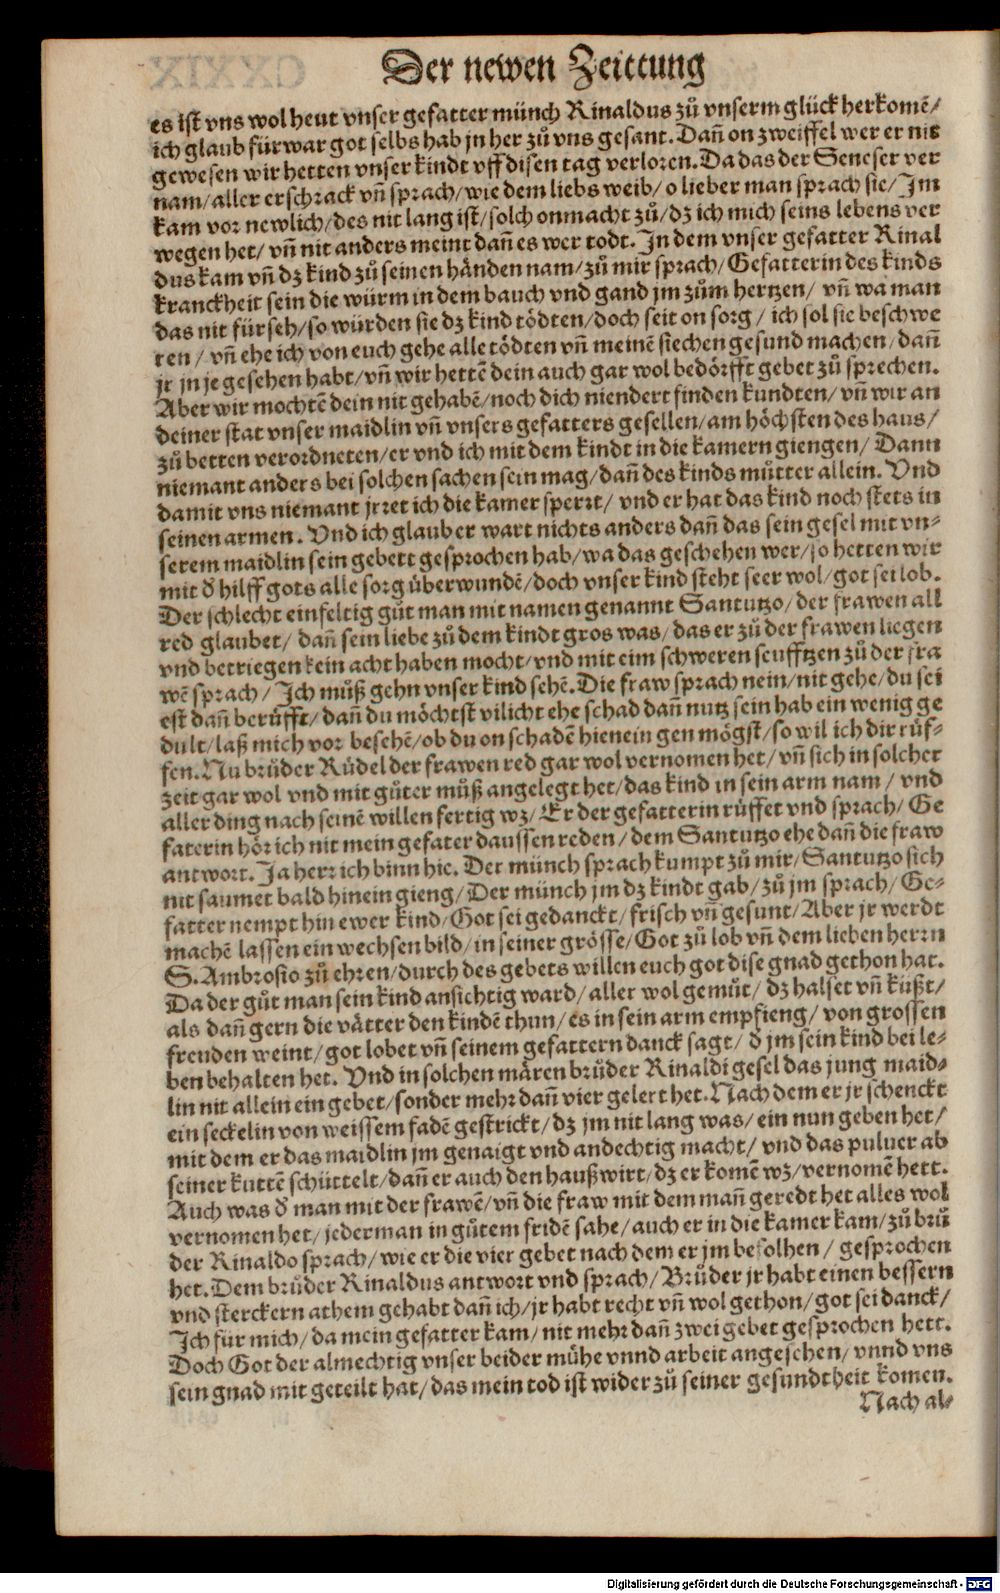 Der newen Zeittung
es ist vns wol heut vnser gefatter münch Rinaldus zů vnserm glück herkomē/
ich glaub fürwar got selbs hab jn her zů vns gesant. Dañ on zweiffel wer er nit
gewesen wir hetten vnser kindt vff disen tag verloren. Da das der Seneser ver
nam/ aller erschrack vñ sprach/ wie dem liebs weib/ o lieber man sprach sie/ Im
kam vor newlich/ des nit lang ist/ solch onmacht zů/ dz ich mich seins lebens ver
wegen het/ vñ nit anders meint dañ es wer todt. In dem vnser gefatter Rinal
dus kam vñ dz kind zů seinen händen nam/ zů mir sprach/ Gefatterin des kinds
kranckheit sein die würm in dem bauch vnd gand jm zům hertzen/ vñ wa man
das nit fürseh/ so würden sie dz kind tödten/ doch seit on sorg/ ich sol sie beschwe
ren/ vñ ehe ich von euch gehe alle tödten vñ meinē siechen gesund machen/ dañ
jr jn je gesehen habt/ vñ wir hettē dein auch gar wol bedörfft gebet zů sprechen.
Aber wir mochtē dein nit gehabē/ noch dich niendert finden kundten/ vñ wir an
deiner stat vnser maidlin vñ vnsers gefatters gesellen/ am höchsten des haus/
zů betten verordneten/ er vnd ich mit dem kindt in die kamern giengen/ Dann
niemant anders bei solchen sachen sein mag/ dañ des kinds můtter allein. Vnd
damit vns niemant jrret ich die kamer sperrt/ vnd er hat das kind noch stets in
seinen armen. Vnd ich glaub er wart nichts anders dañ das sein gesel mit vn-
serem maidlin sein gebett gesprochen hab/ wa das geschehen wer/ so hetten wir
mit ð hilff gots alle sorg überwundē/ doch vnser kind steht seer wol/ got sei lob.
Der schlecht einfeltig gůt man mit namen genannt Santutzo/ der frawen all
red glaubet/ dañ sein liebe zů dem kindt gros was/ das er zů der frawen liegen
vnd betriegen kein acht haben mocht/ vnd mit eim schweren seufftzen zů der fra
wē sprach/ Ich můß gehn vnser kind sehē. Die fraw sprach nein/ nit gehe/ du sei
est dañ berůfft/ dañ du möchtst vilicht ehe schad dañ nutz sein hab ein wenig ge
dult/ laß mich vor besehē/ ob du on schadē hienein gen mögst/ so wil ich dir růf-
fen. Nu brůder Růdel der frawen red gar wol vernomen het/ vñ sich in solcher
zeit gar wol vnd mit gůter můß angelegt het/ das kind in sein arm nam/ vnd
aller ding nach seinē willen fertig wz/ Er der gefatterin růffet vnd sprach/ Ge
faterin hör ich nit mein gefater daussen reden/ dem Santutzo ehe dañ die fraw
antwort. Ja herr ich binn hie. Der münch sprach kumpt zů mir/ Santutzo sich
nit saumet bald hinein gieng/ Der münch jm dz kindt gab/ zů jm sprach/ Ge-
fatter nempt hin ewer kind/ Got sei gedanckt/ frisch vñ gesunt/ Aber jr werdt
machē lassen ein wechsen bild/ in seiner grösse/ Got zů lob vñ dem lieben herrn
S. Ambrosio zů ehren/ durch des gebets willen euch got dise gnad gethon hat.
Da der gůt man sein kind ansichtig ward/ aller wol gemůt/ dz halset vñ küßt/
als dañ gern die vätter den kindē thun/ es in sein arm empfieng/ von grossen
freuden weint/ got lobet vñ seinem gefattern danck sagt/ ð jm sein kind bei le-
ben behalten het. Vnd in solchen mären brůder Rinaldi gesel das jung maid-
lin nit allein ein gebet/ sonder mehr dañ vier gelert het. Nach dem er jr schenckt
ein seckelin von weissem fadē gestrickt/ dz jm nit lang was/ ein nun geben het/
mit dem er das maidlin jm genaigt vnd andechtig macht/ vnd das puluer ab
seiner kuttē schüttelt/ dañ er auch den haußwirt/ dz er komē wz/ vernomē hett.
Auch was ð man mit der frawē/ vñ die fraw mit dem mañ geredt het alles wol
vernomen het/ jederman in gůtem fridē sahe/ auch er in die kamer kam/ zů brů
der Rinaldo sprach/ wie er die vier gebet nach dem er jm befolhen/ gesprochen
het. Dem brůder Rinaldus antwort vnd sprach/ Brůder jr habt einen bessern
vnd sterckern athem gehabt dañ ich/ jr habt recht vñ wol gethon/ got sei danck/
Ich für mich/ da mein gefatter kam/ nit mehr dañ zwei gebet gesprochen hett.
Doch Got der almechtig vnser beider mühe vnnd arbeit angesehen/ vnnd vns
sein gnad mit geteilt hat/ das mein tod ist wider zů seiner gesundtheit komen.
Nach al-
Digitalisierung gefördert durch die Deutsche Forschungsgemeinschaft - DFG